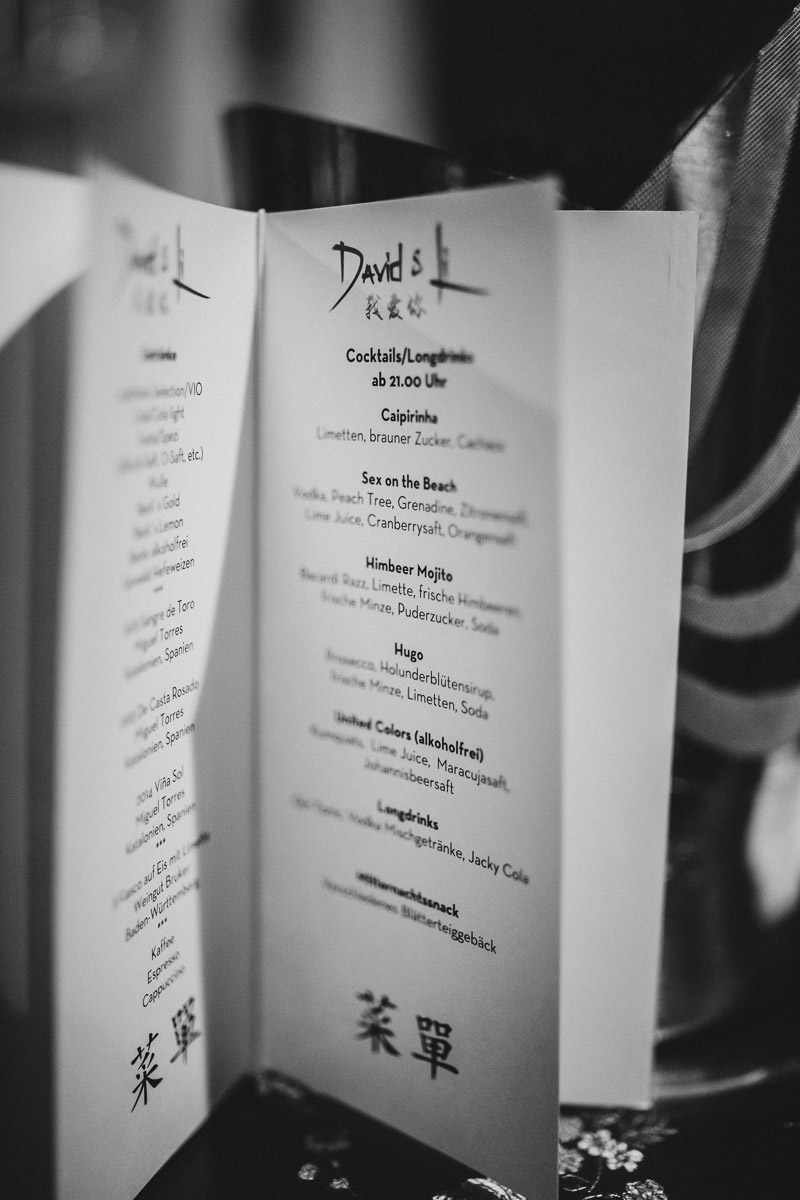 Getränke
Selection/VIO
light
Spezi
Saft, O-Saft, etc.)
Gold
Lemon
alkoholfrei
Hefeweizen
***
Sangre de Toro
Miguel Torres
Katalonien, Spanien
De Casta Rosado
Miguel Torres
Katalonien, Spanien
2014 Viña Sol
Miguel Torres
Katalonien, Spanien
***
auf Eis mit Limette
Weingut Bruker
Baden-Württemberg
***
Kaffee
Espresso
Cappuccino
菜單
David & Li
我爱你
Cocktails/Longdrinks
ab 21.00 Uhr
Caipirinha
Limetten, brauner Zucker, Cachaca
Sex on the Beach
Vodka, Peach Tree, Grenadine, Zitronensaft,
Lime Juice, Cranberrysaft, Orangensaft
Himbeer Mojito
Bacardi Razz, Limette, frische Himbeeren,
frische Minze, Puderzucker, Soda
Hugo
Prosecco, Holunderblütensirup,
frische Minze, Limetten, Soda
United Colors (alkoholfrei)
Lime Juice, Maracujasaft,
Johannisbeersaft
Longdrinks
Vodka Mischgetränke, Jacky Cola
Mitternachtssnack
Verschiedenes Blätterteiggebäck
菜單